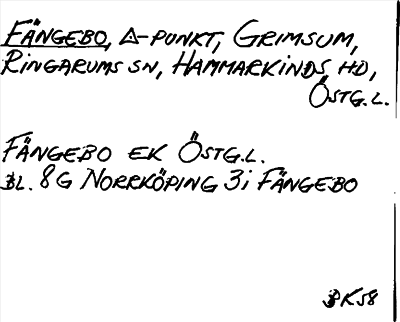 FÄNGEBO, △-PUNKT, GRIMSUM,
RINGARUMS SN, HAMMARKINDS HD,
ÖSTG.L.
FÄNGEBO EK ÖSTG.L.
BL. 8G NORRKÖPING 3i FÄNGEBO
BK58